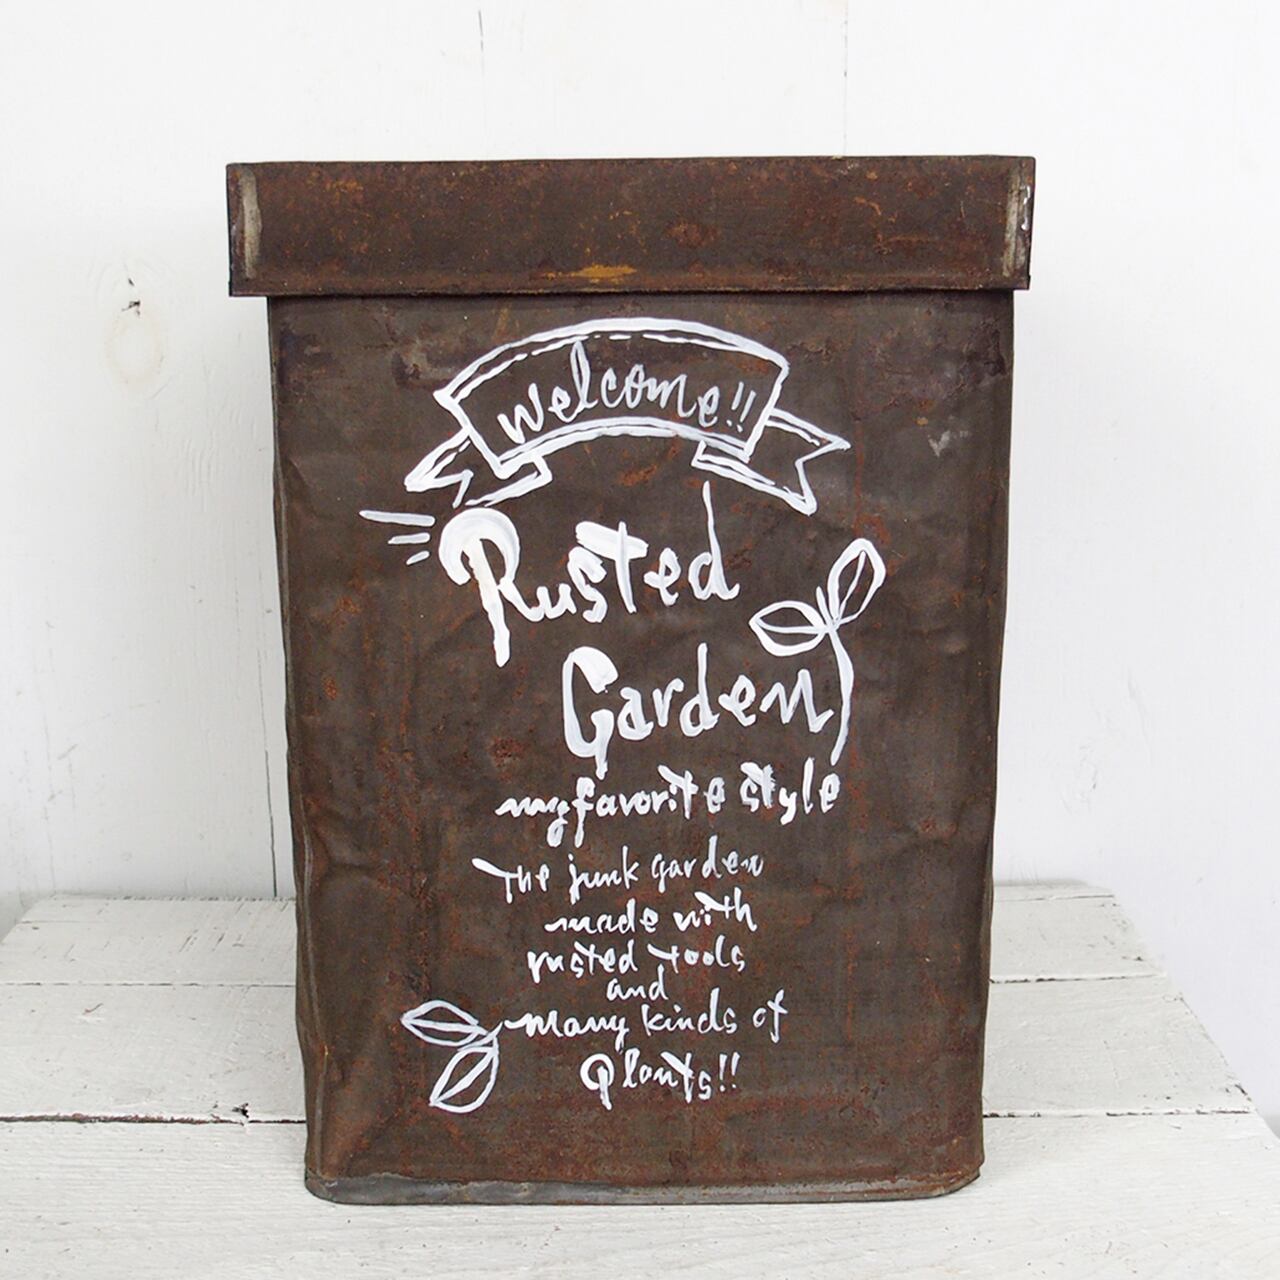 welcome!!
Rusted
Garden
my favorite style
The junk garden
made with
rusted tools
and
many kinds of
Plants!!